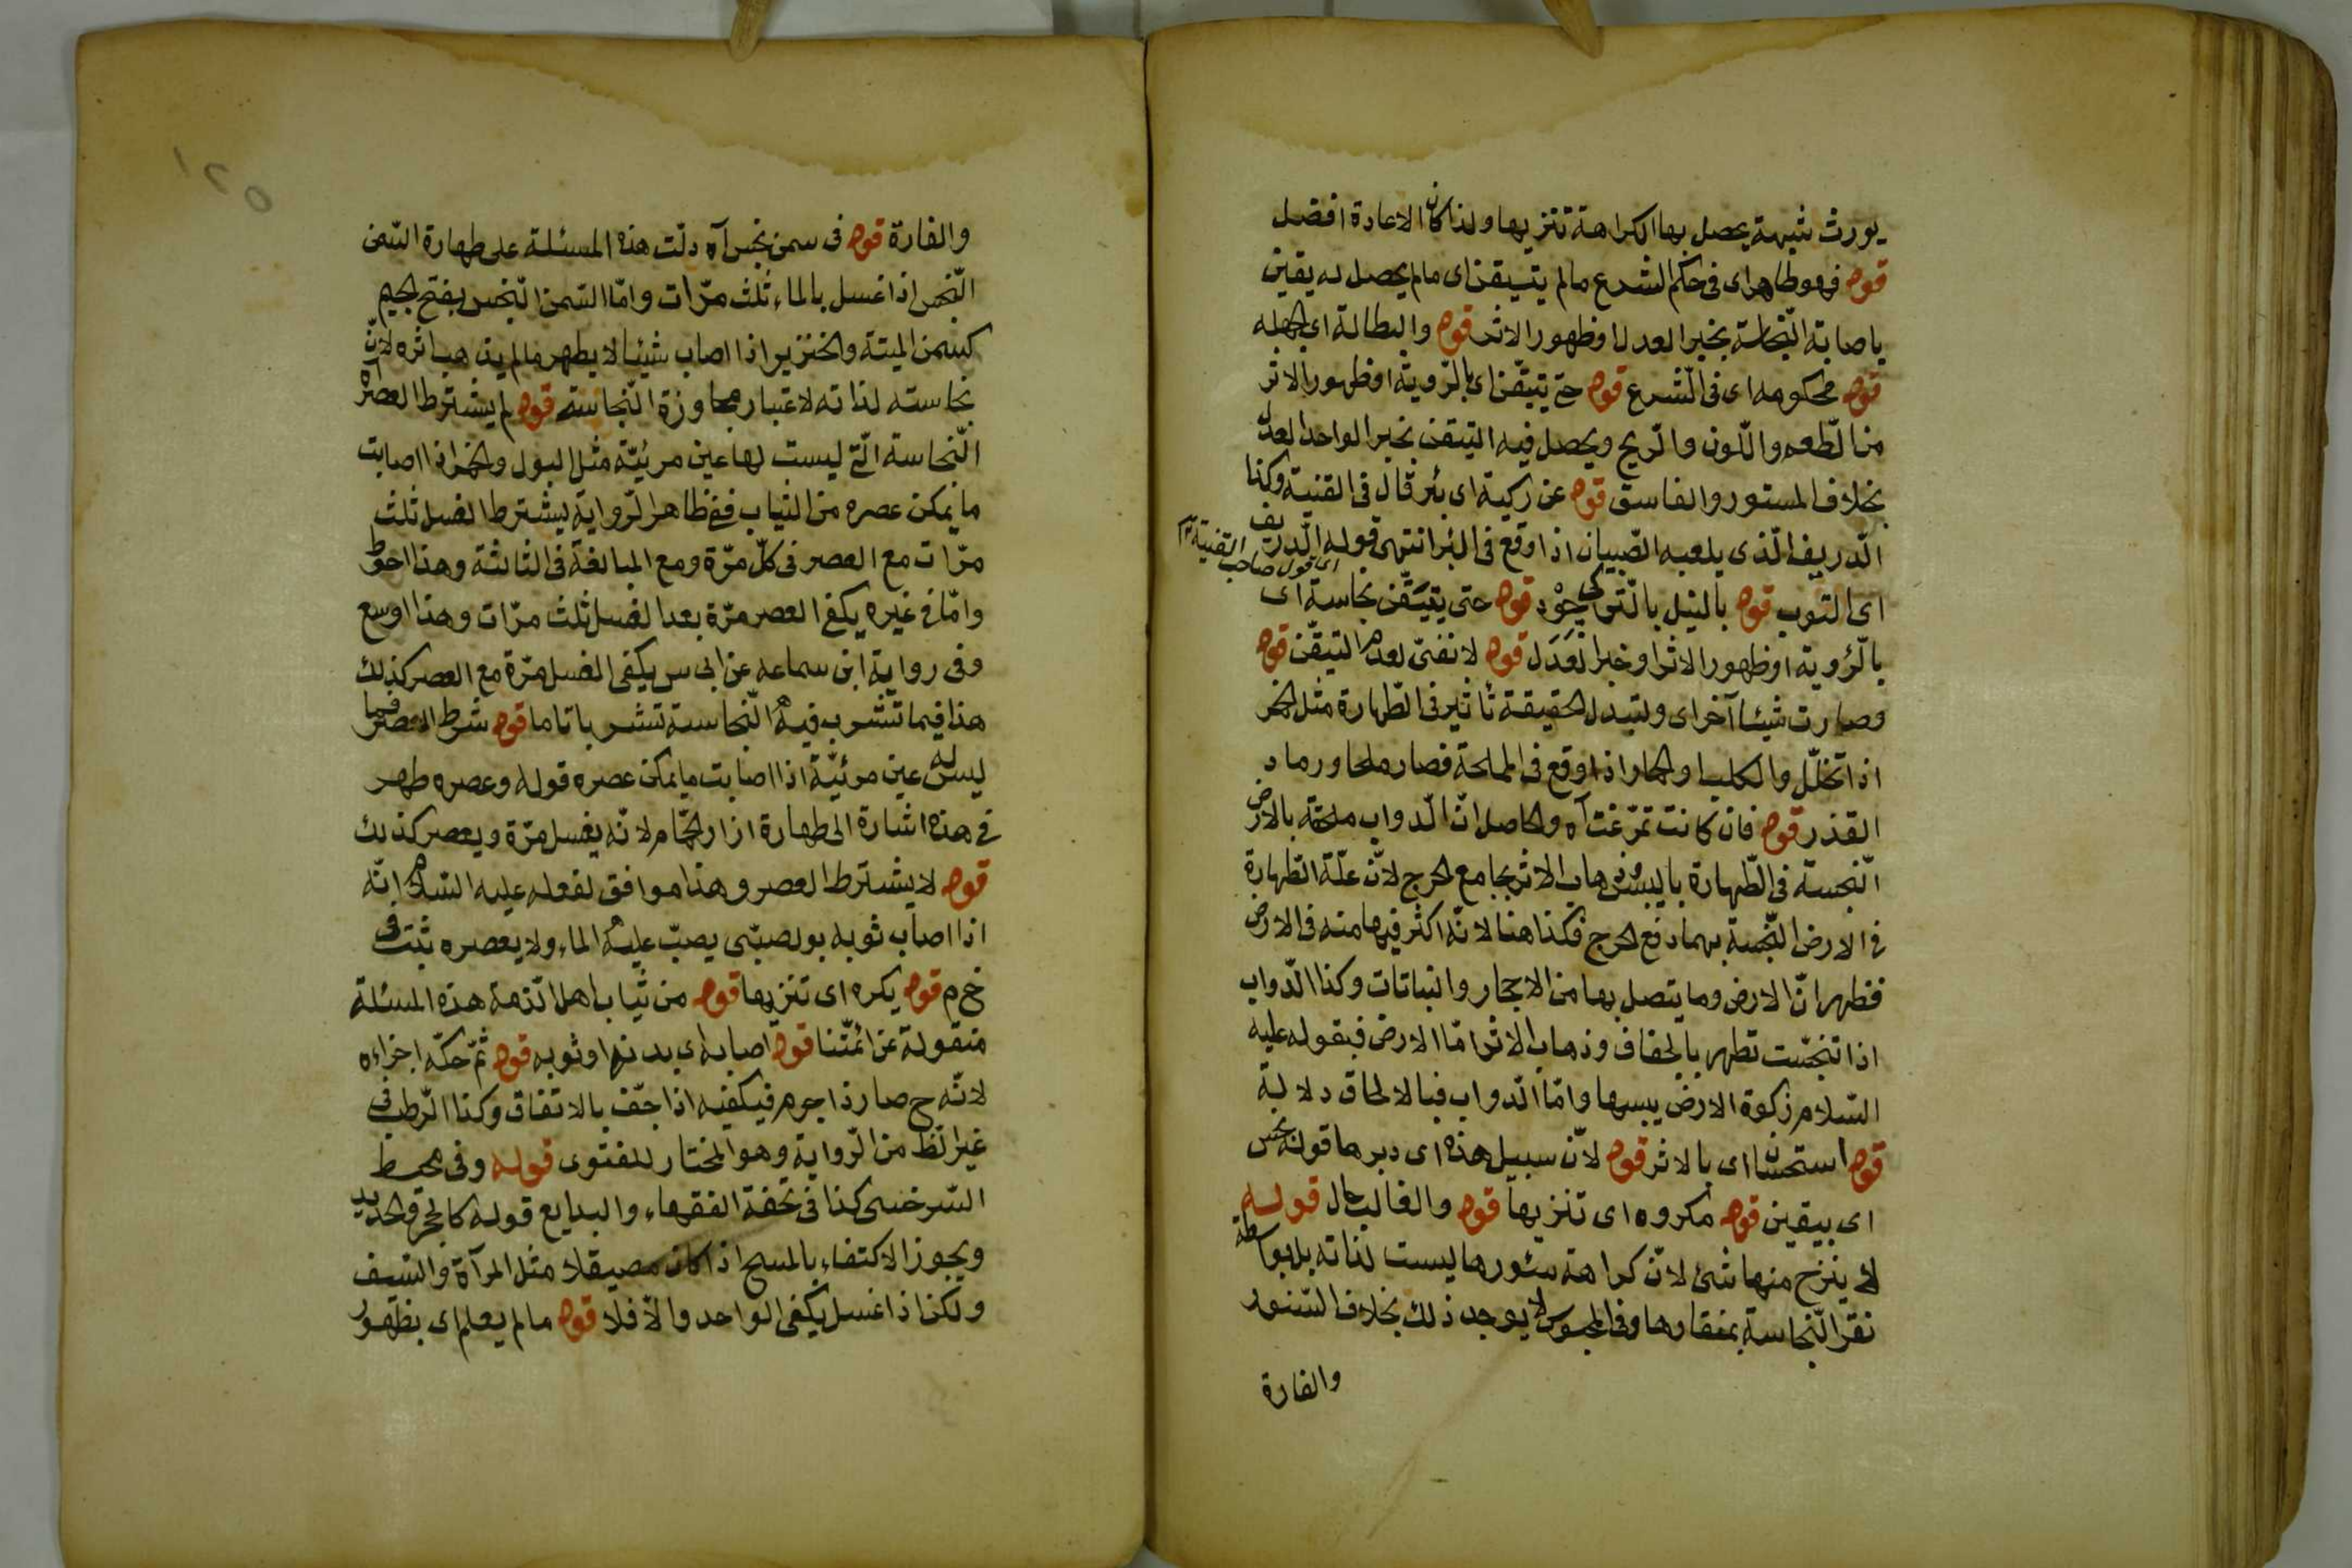 يورث شبهة يحصل بها الكراهة تنزيها ولذا كان الاعادة افضل
قوله فهو طاهر اى فى حكم الشرع مالم يتيقن اى مالم يحصل له يقين
باصابة النّجاسة بخبر العدل او ظهور الاثر قوله والبطالة اى الجهلة
قوله محكومه اى فى الشرع قوله حتى يتيقّن اى بالرّوية او ظهور الاثر
من الطّعم واللّون والرّيح ويحصل فيه التيقن بخبر الواحد العدل
بخلاف المستور والفاسق قوله عن ركية اى بئر قال فى القنية وكذا
الدريف الّذى يلعبه الصّبيان اذا وقع فى البئر انتهى قوله الدّريف
اى قول صاحب القنية
اى التوب قوله بالنيل بالتّركى چوْد قوله حتى يتيقّن نجاسة اى
بالرّؤية او ظهور الاثر او خبر العَدَل قوله لا نفتى لعدم التيقّن قوله
وصارت شيئا آخر اى ولتبدل الحقيقة تأثير فى الطّهارة مثل الخمر
اذا تخلّل والكلب والحمار اذا وقع فى المملحة فصار ملحا ورماد
القذر قوله فان كانت تمرّغت آه والحاصل انّ الدّواب ملحقة بالارض
النّجسة فى الطّهارة باليبس وذهاب الاثر بجامع الحرج لانّ علّة الطّهارة
فى الارض النّجسة بهما دفع الحرج فكذا هنا لانّه اكثر فيها منه فى الارض
فظهر انّ الارض وما يتصل بها من الاحجار والنباتات وكذا الدّواب
اذا تنجّست تطهر بالجفاف وذهاب الاثر امّا الارض فبقوله عليه
السّلام زكوة الارض يبسها وامّا الدّواب فبالالحاق دلالة
قوله استحسان اى بالاثر قوله لانّ سبيل هذه اى دبرها قوله نجس
اى بيقين قوله مكروه اى تنزيها قوله والغالب حال قوله
لا ينزح منها شئ لانّ كراهة سئورها ليست لذاته بل بواسطة
نقر النّجاسة بمنقارها وفى المحبوس لا يوجد ذلك بخلاف السّنور
والفارة
١٢٥
والفارة قوله فى سمن نجس آه دلّت هذه المسئلة على طهارة السّمن
النّجس اذا غسل بالماء ثلث مرّات وامّا السّمن النّجس بفتح الجيم
كسمن الميتة والخنزير اذا اصاب شيئا لا يطهر مالم يذهب اثره لانّ
نجاسته لذاته لا عتبار مجاوزة النّجاسة قوله لم يشترط العصر آه
النّجاسة الّتى ليست لها عين مرئيّة مثل البول والخمر اذا اصابت
ما يمكن عصره من الثياب ففى ظاهر الرّواية يشترط الغسل ثلث
مرّات مع العصر فى كلّ مرّة ومع المبالغة فى الثالثة وهذا احوط
وامّا فى غيره يكفى العصر مرّة بعد الغسل ثلث مرّات وهذا اوسع
وفى رواية ابن سماعه عن ابى س يكفى الغسل مرّة مع العصر كذلك
هذا فيما تتشرب فيه النّجاسة تشربا تاما قوله شرط العصر فيما
ليس له عين مرئيّة اذا اصابت ما يمكن عصره قوله وعصره طهر
فى هذه اشارة الى طهارة ازار الحمّام لانّه يغسل مرّة ويعصر كذلك
قوله لا يشترط العصر وهذا موافق لفعله عليه السّلام انّه
اذا اصاب ثوبه بول صبّى يصبّ عليه الماء ولا يعصره ثبت فى
خ م قوله يكره اى تنزيها قوله من ثياب اهل الذّمة هذه المسئلة
منقولة عن ائمّتنا قوله اصابه اى بدنها او ثوبه قوله ثمّ حكّه اجزاءه
لانّه ح صار ذا جرم فيكفيه اذا جفّ بالاتفاق وكذا الرّطب فى
غير الظ من الرّواية وهو المختار للفتوى قوله وفى محيط
السّرخسى كذا فى تحفة الفقهاء والبدايع قوله كالحجر والحديد
ويجوز الاكتفاء بالمسح اذا كان مصيقلا مثل المرآة والسّيف
ولكن اذا غسل يكفى الواحد والاّ فلا قوله مالم يعلم اى بظهور